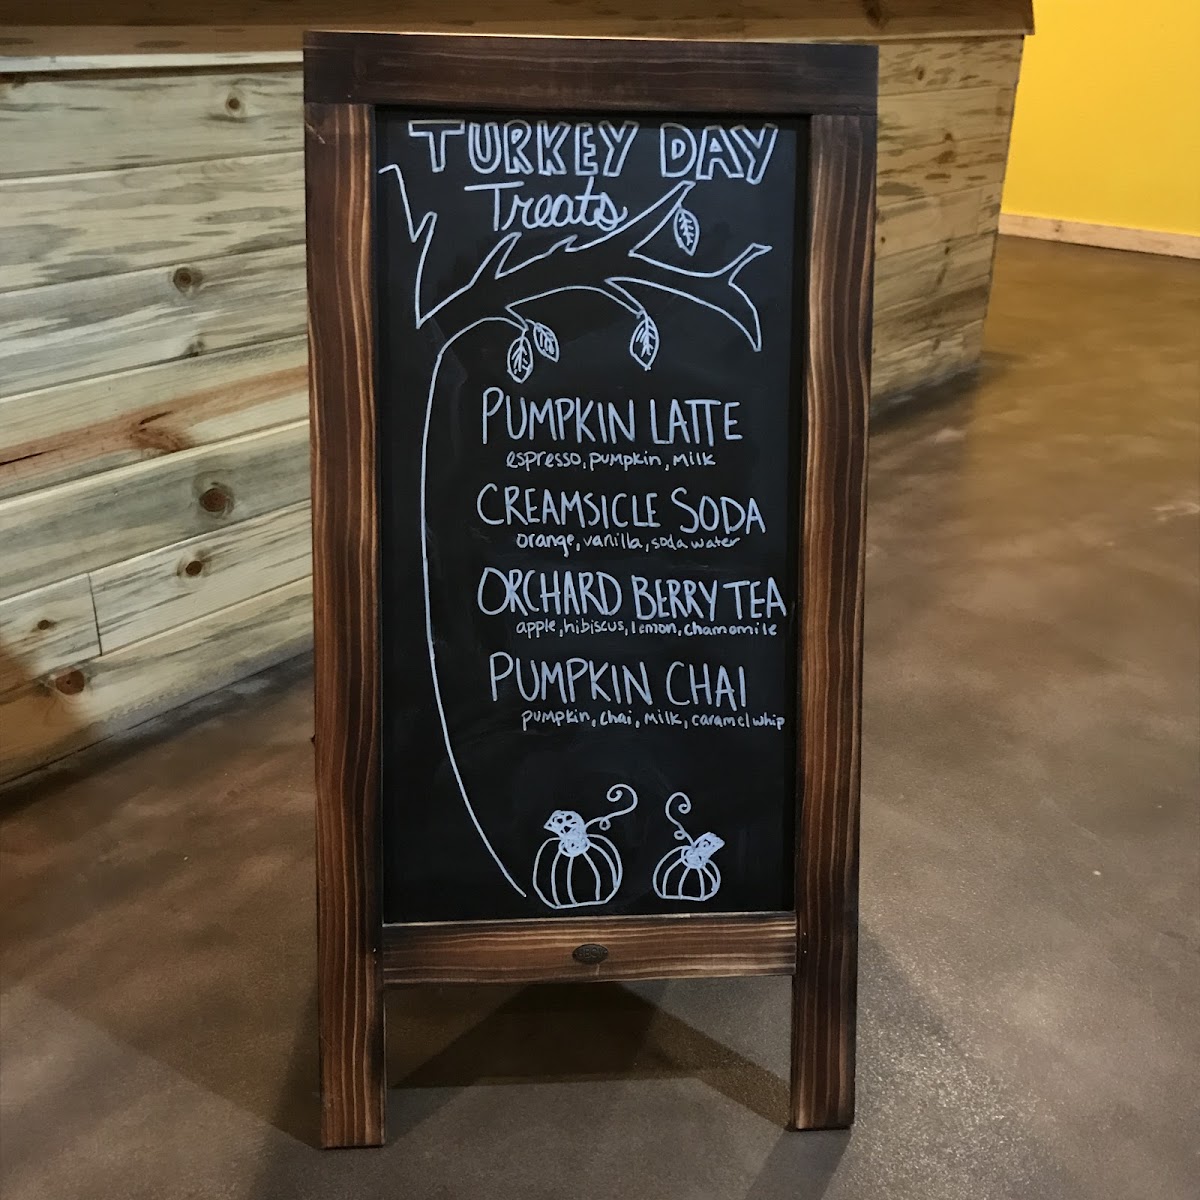 TURKEY DAY
Treats
PUMPKIN LATTE
espresso, pumpkin, milk
CREAMSICLE SODA
orange, vanilla, soda water
ORCHARD BERRY TEA
apple, hibiscus, lemon, chamomile
PUMPKIN CHAI
pumpkin, chai, milk, caramel whip